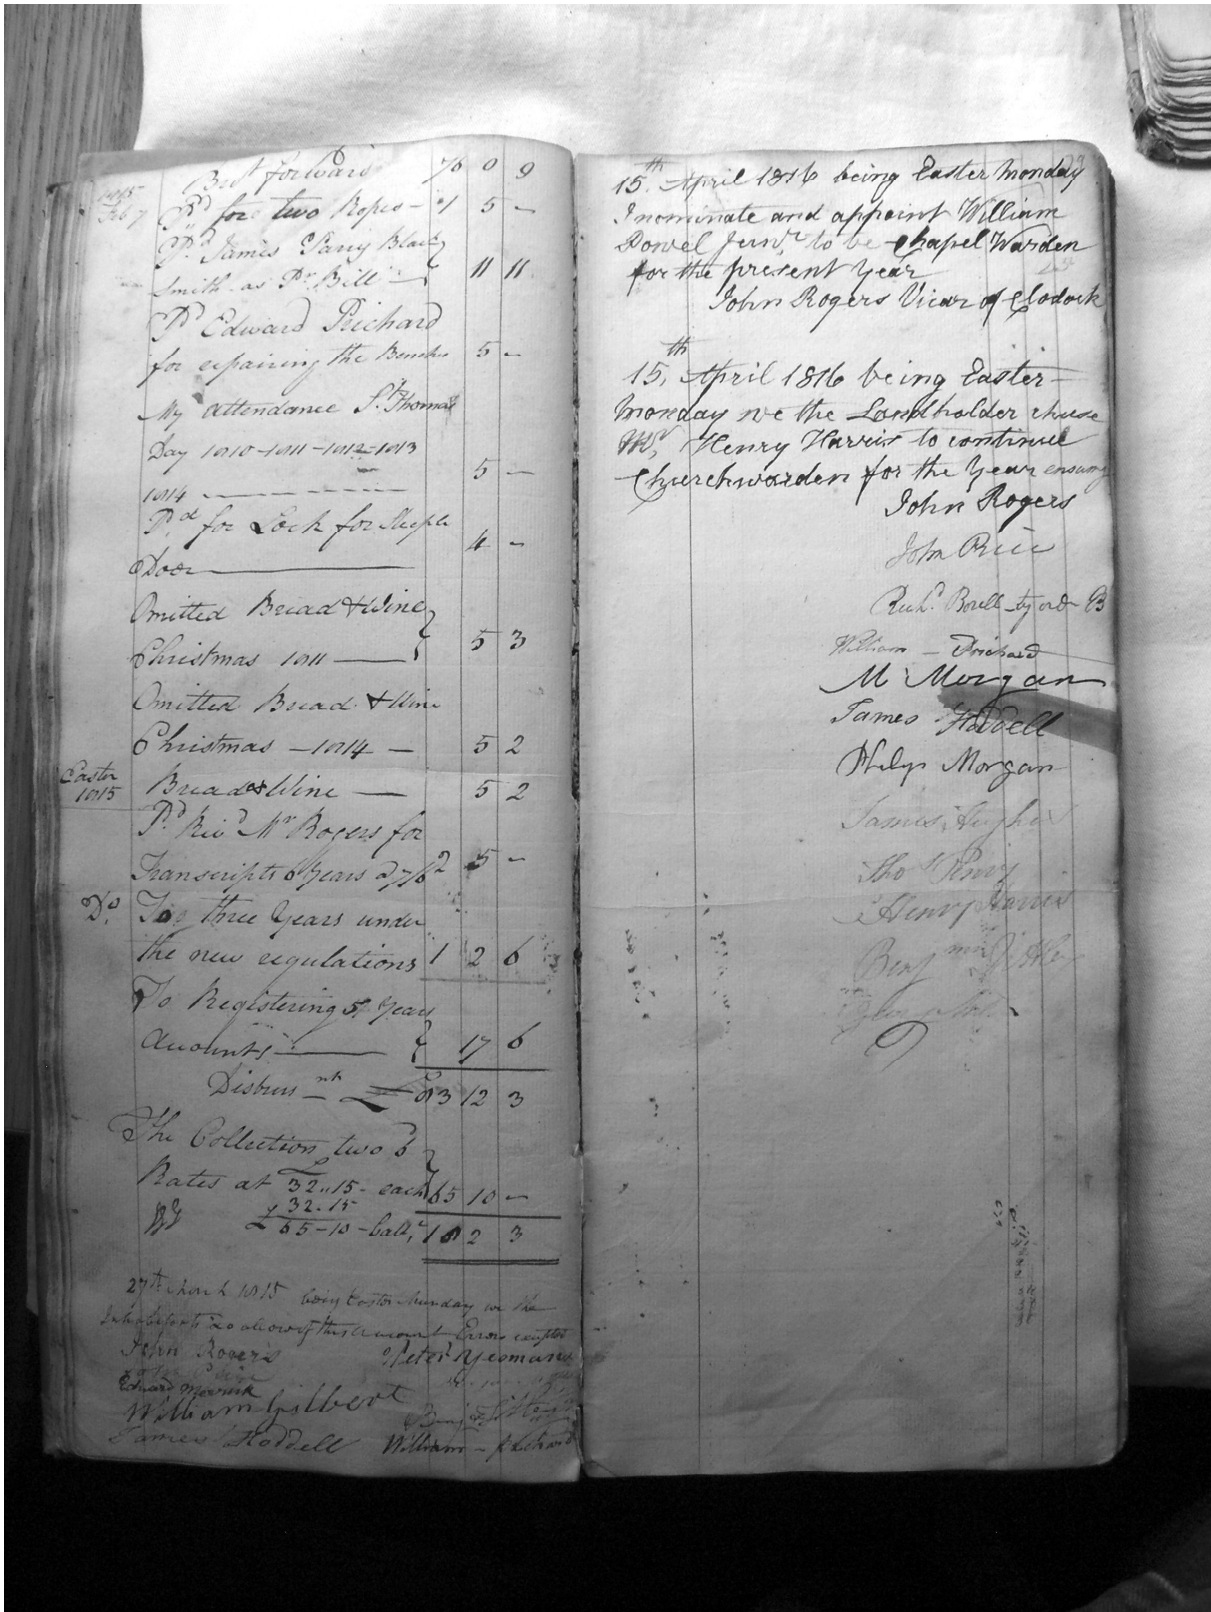 Brot forward 76 0 9
1815
Feb 7 Pd for two Ropes - 1 5 -
Pd James Parry Black
Smith as Pr Bill - 11 11
Pd Edward Prichard
for repairing the Benches 5 -
My attendance St Thomas
Day 1810-1811-1812-1813
1814 5 -
Pd for Lock for Steeple
Door 4 -
Omitted Bread & Wine
Christmas 1811 5 3
Omitted Bread & Wine
Christmas - 1814 - 5 2
Easter
1815 Bread & Wine - 5 2
Pd Revd Mr Rogers for
Transcripts 6 Years a 7/6 2 5 -
Do. To three Years under
the new regulations 1 2 6
To Registering 5 Years
Accounts 17 6
Disbursmts £ 83 12 3
The Collection two
Rates at 32..15- each 65 10 -
32-15
£65-10- ball. 18 2 3
27th March 1815 being Easter Munday we the
Inhabitants do allow of this Account Errors excepted
John Rogers Peter Yeomans
Edward Merrick
William Gilbert
James Hoddell William - Prichard
15.th April 1816 being Easter Monday
I nominate and appoint William
Powel Junr to be Chapel Warden
for the present Year
John Rogers Vicar of Clodock
15,th April 1816 being Easter-
Monday we the Landholder chuse
Mr, Henry Harris to continue
Churchwarden for the Year ensuing
John Rogers
John Price
Richd. Powell
William - Prichard
M Morgan
James Hoddell
Phelp Morgan
James Hughes
Thos Perry
Henry Harris
Benjmn